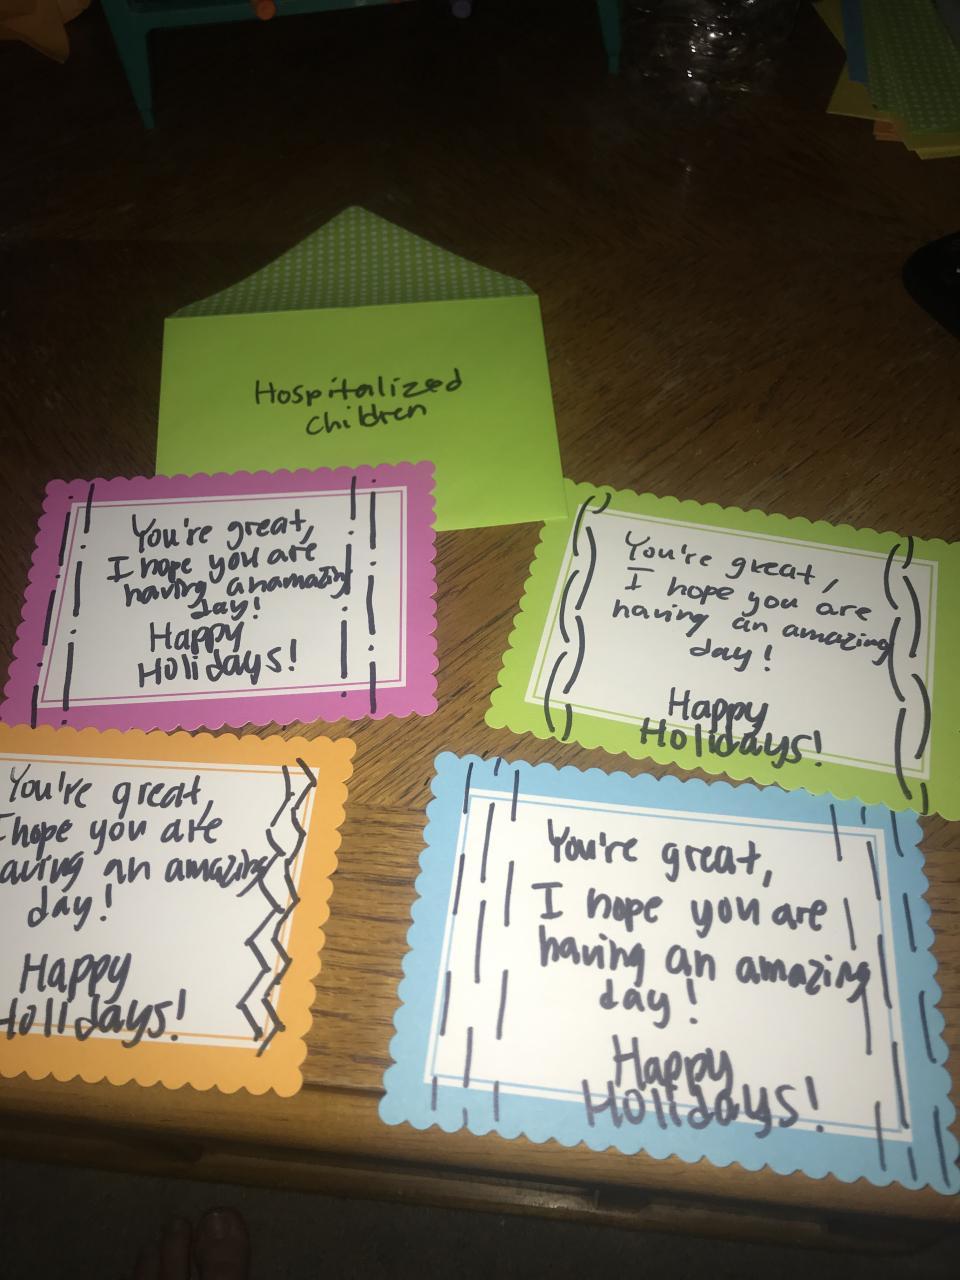 Hospitalized
Children
You're great,
I hope you are
having an amazing
day!
Happy
Holidays!
You're great,
I hope you are
having an amazing
day!
Happy
Holidays!
You're great,
I hope you are
having an amazing
day!
Happy
Holidays!
You're great,
I hope you are
having an amazing
day!
Happy
Holidays!